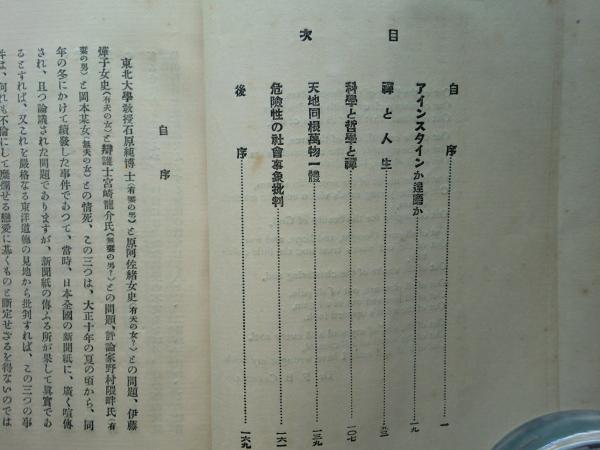 目次
自序……………一
アインスタインか達磨か……………一九
禪と人生……………八三
科學と哲學と禪……………一〇七
天地同根萬物一體……………一三九
危險性の社會事象批判……………一六一
後序……………一六九
自序
東北大學敎授石原純博士（有妻の男）と原阿佐緖女史（有夫の女？）との問題、伊藤
燁子女史（有夫の女）と辯護士宮崎龍介氏（無妻の男？）との問題、評論家野村隈畔氏（有
妻の男）と岡本某女（無夫の女）との情死、この三つは、大正十年の夏の頃から、同
年の冬にかけて續發した事件であつて、當時、日本全國の新聞紙に、廣く喧傳
され、且つ論議された問題でありますが、新聞紙の傳ふる所が果して眞實であ
るとすれば、又これを嚴格なる東洋道德の見地から批判すれば、この三つの事
件は、何れも不倫にして糜爛せる戀愛に基くものと斷定せざるを得ないのでは